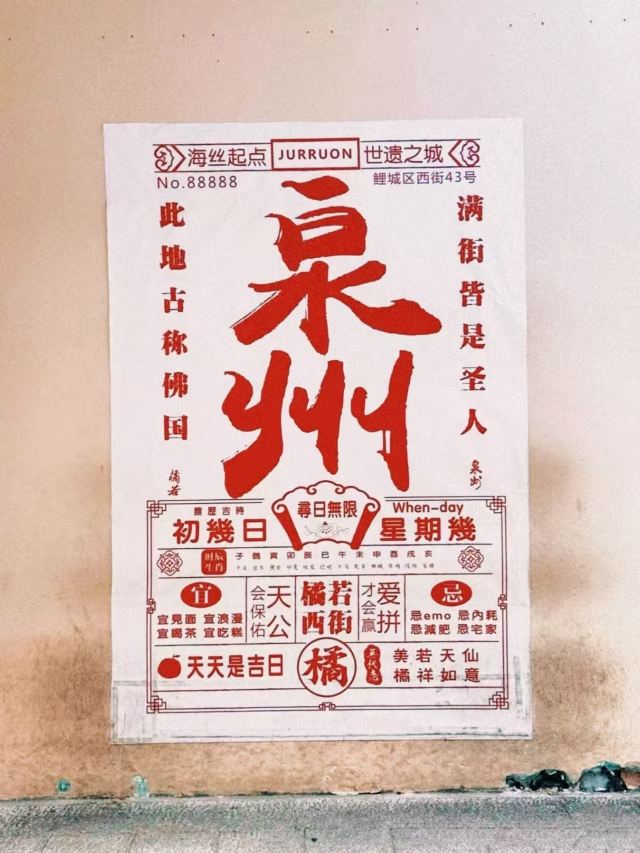 海丝起点 JURRUON 世遗之城
No.88888 鲤城区西街43号
泉州
此地古称佛国
满街皆是圣人
橘若
泉州
農歷吉時
初幾日
尋日無限
When-day
星期幾
时辰
生肖
子 醜 寅 卯 辰 巳 午 未 申 酉 戌 亥
宜
宜見面 宜浪漫
宜喝茶 宜吃糕
天公
会保佑
橘若
西街
爱拼
才会赢
忌
忌emo 忌內耗
忌減肥 忌宅家
天天是吉日
橘
美若天仙
橘祥如意